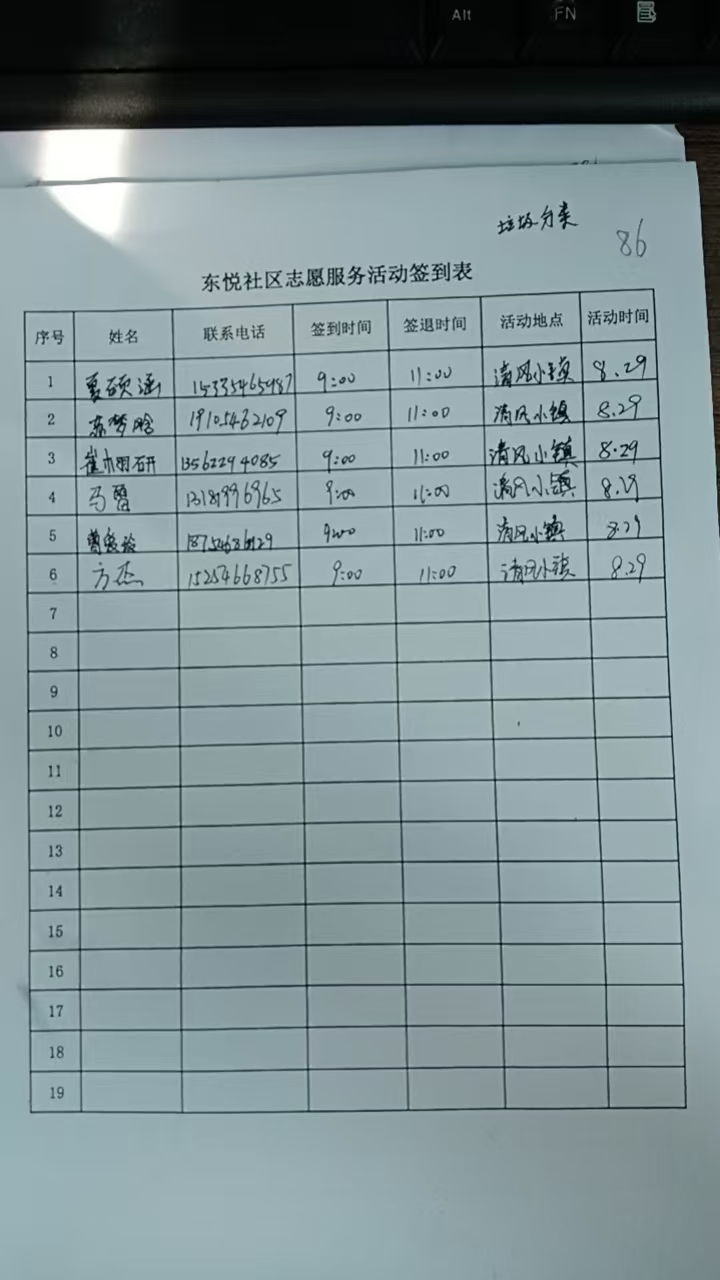 Alt FN
垃圾分类
86
东悦社区志愿服务活动签到表
序号 姓名 联系电话 签到时间 签退时间 活动地点 活动时间
1 夏硕涵 15335465987 9:00 11:00 清风小镇 8.29
2 苏梦晗 19105462109 9:00 11:00 清风小镇 8.29
3 崔 研 13562294085 9:00 11:00 清风小镇 8.29
4 马 9:00 11:00 清风小镇 8.29
5 曾 9:00 11:00 清风小镇 8.29
6 方杰 15254668755 9:00 11:00 清风小镇 8.29
7
8
9
10
11
12
13
14
15
16
17
18
19